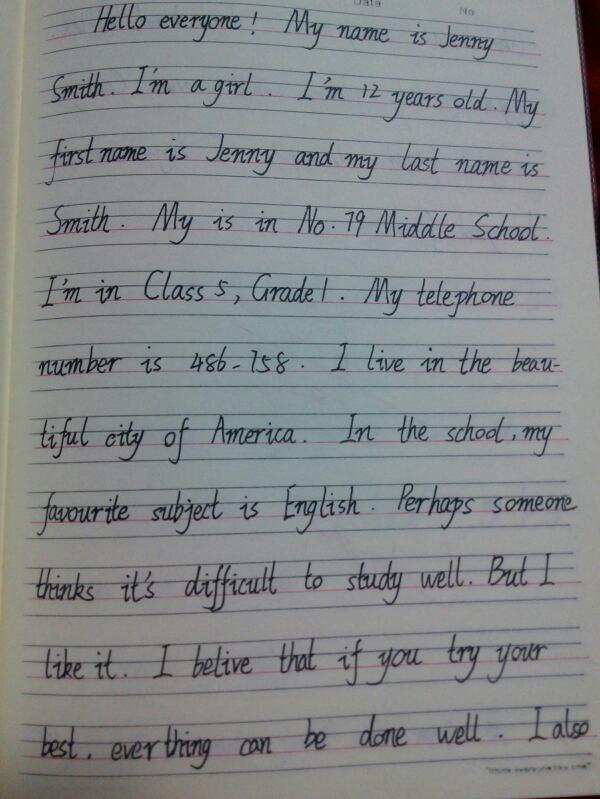 Date No
Hello everyone! My name is Jenny
Smith. I'm a girl. I'm 12 years old. My
first name is Jenny and my last name is
Smith. My is in No.79 Middle School.
I'm in Class 5, Grade 1. My telephone
number is 486-758. I live in the beau-
tiful city of America. In the school, my
favourite subject is English. Perhaps someone
thinks it's difficult to study well. But I
like it. I belive that if you try your
best, everthing can be done well. I also